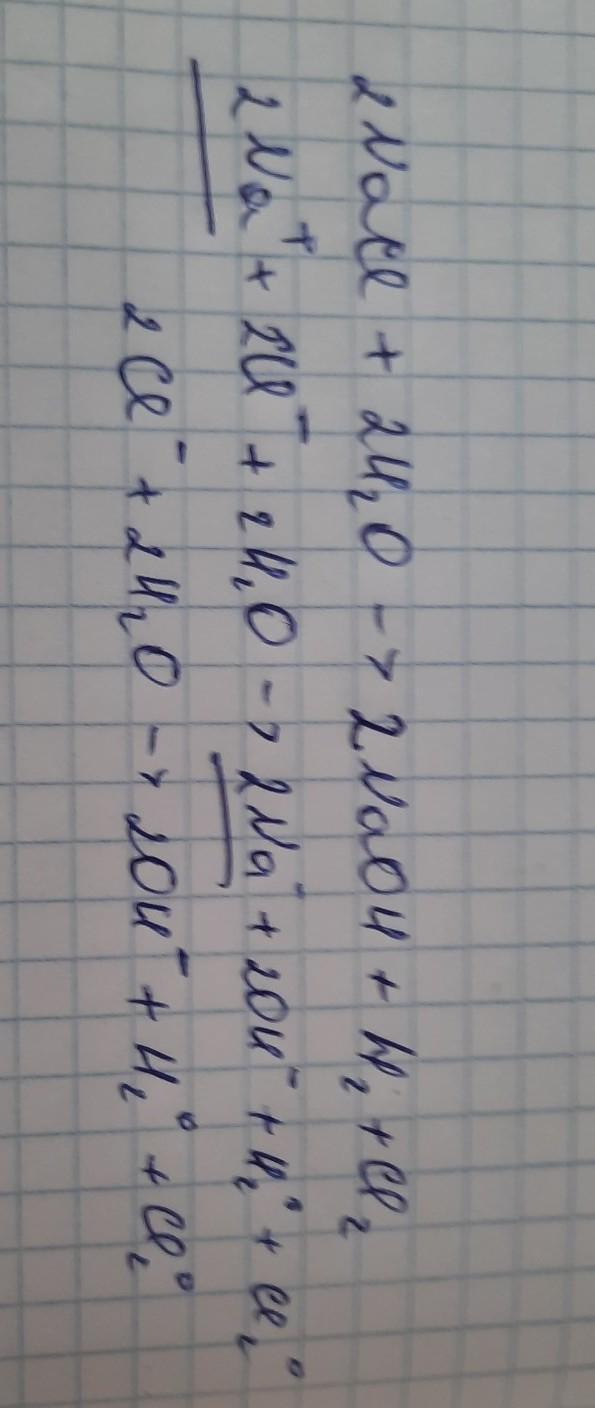 2NaCl + 2H₂O → 2NaOH + H₂ + Cl₂
2Na⁺ + 2Cl⁻ + 2H₂O → 2Na⁻ + 2OH⁻ + H₂⁰ + Cl₂⁰
2Cl⁻ + 2H₂O → 2OH⁻ + H₂⁰ + Cl₂⁰